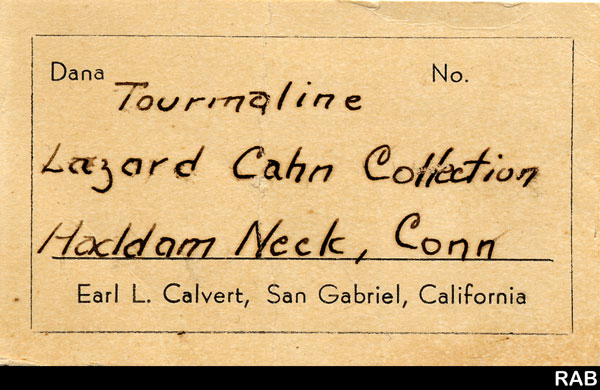 Dana No.
Tourmaline
Lazard Cahn Collection
Haddam Neck, Conn
Earl L. Calvert, San Gabriel, California
RAB